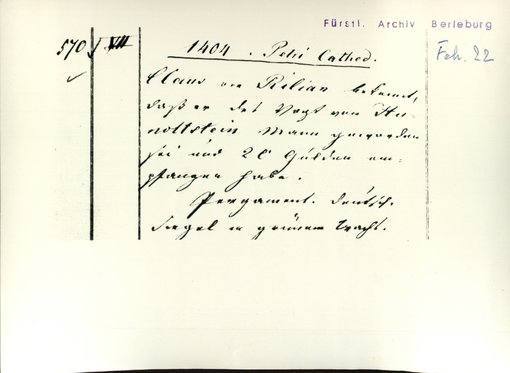 Fürstl. Archiv Berleburg
570 VII
1404. Petri Cathed.
Feb. 22
Claus von Kilian bekennt,
daß er des Vogt von Hu-
noltstein Mann geworden
sei und 20 Gulden em-
pfangen habe.
Pergament. deutsch.
Siegel in grünem Wachs.